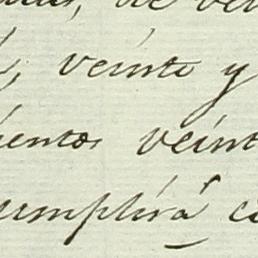 de
; veinte y
ientos veint
umplirá c